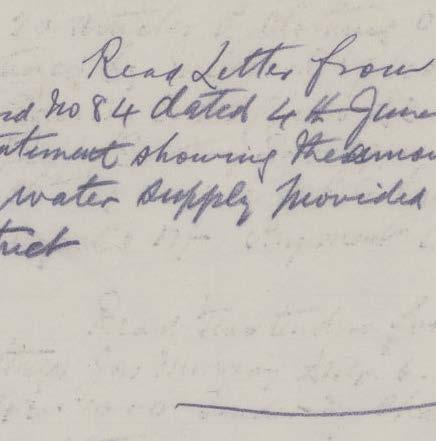 Read Letter from
rd no 84 dated 4th June
atement showing the amou
water supply provided
trict